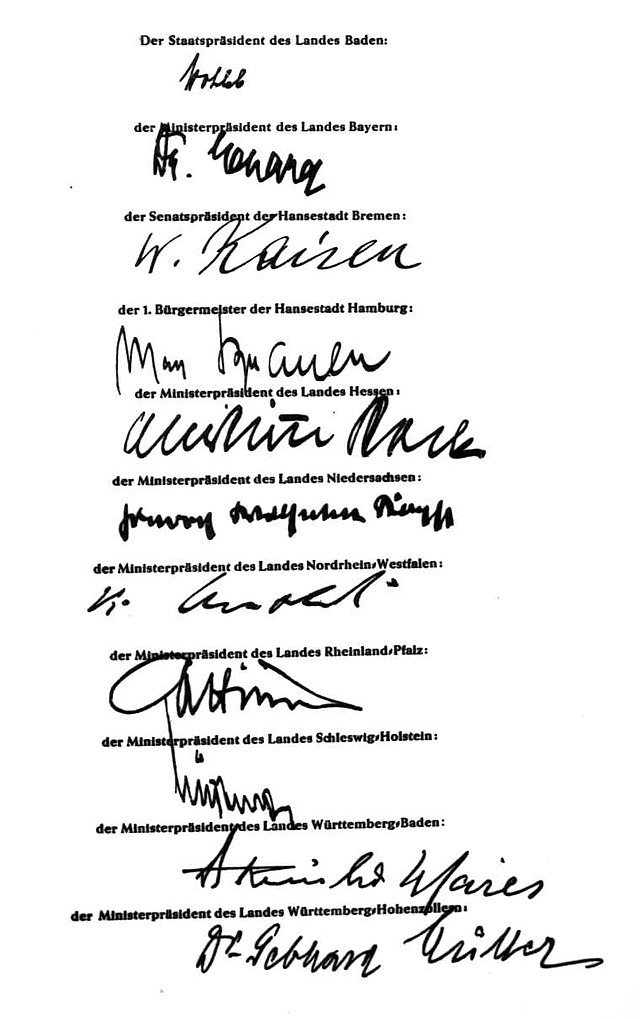 Der Staatspräsident des Landes Baden:
Wohleb
der Ministerpräsident des Landes Bayern:
Dr. Ehard
der Senatspräsident der Hansestadt Bremen:
W. Kaisen
der 1. Bürgermeister der Hansestadt Hamburg:
Max Brauer
der Ministerpräsident des Landes Hessen:
Christian Stock
der Ministerpräsident des Landes Niedersachsen:
Hinrich Wilhelm Kopf
der Ministerpräsident des Landes Nordrhein-Westfalen:
K. Arnold
der Ministerpräsident des Landes Rheinland-Pfalz:
Altmeier
der Ministerpräsident des Landes Schleswig-Holstein:
Lüdemann
der Ministerpräsident des Landes Württemberg-Baden:
Reinhold Maier
der Ministerpräsident des Landes Württemberg-Hohenzollern:
Dr. Gebhard Müller